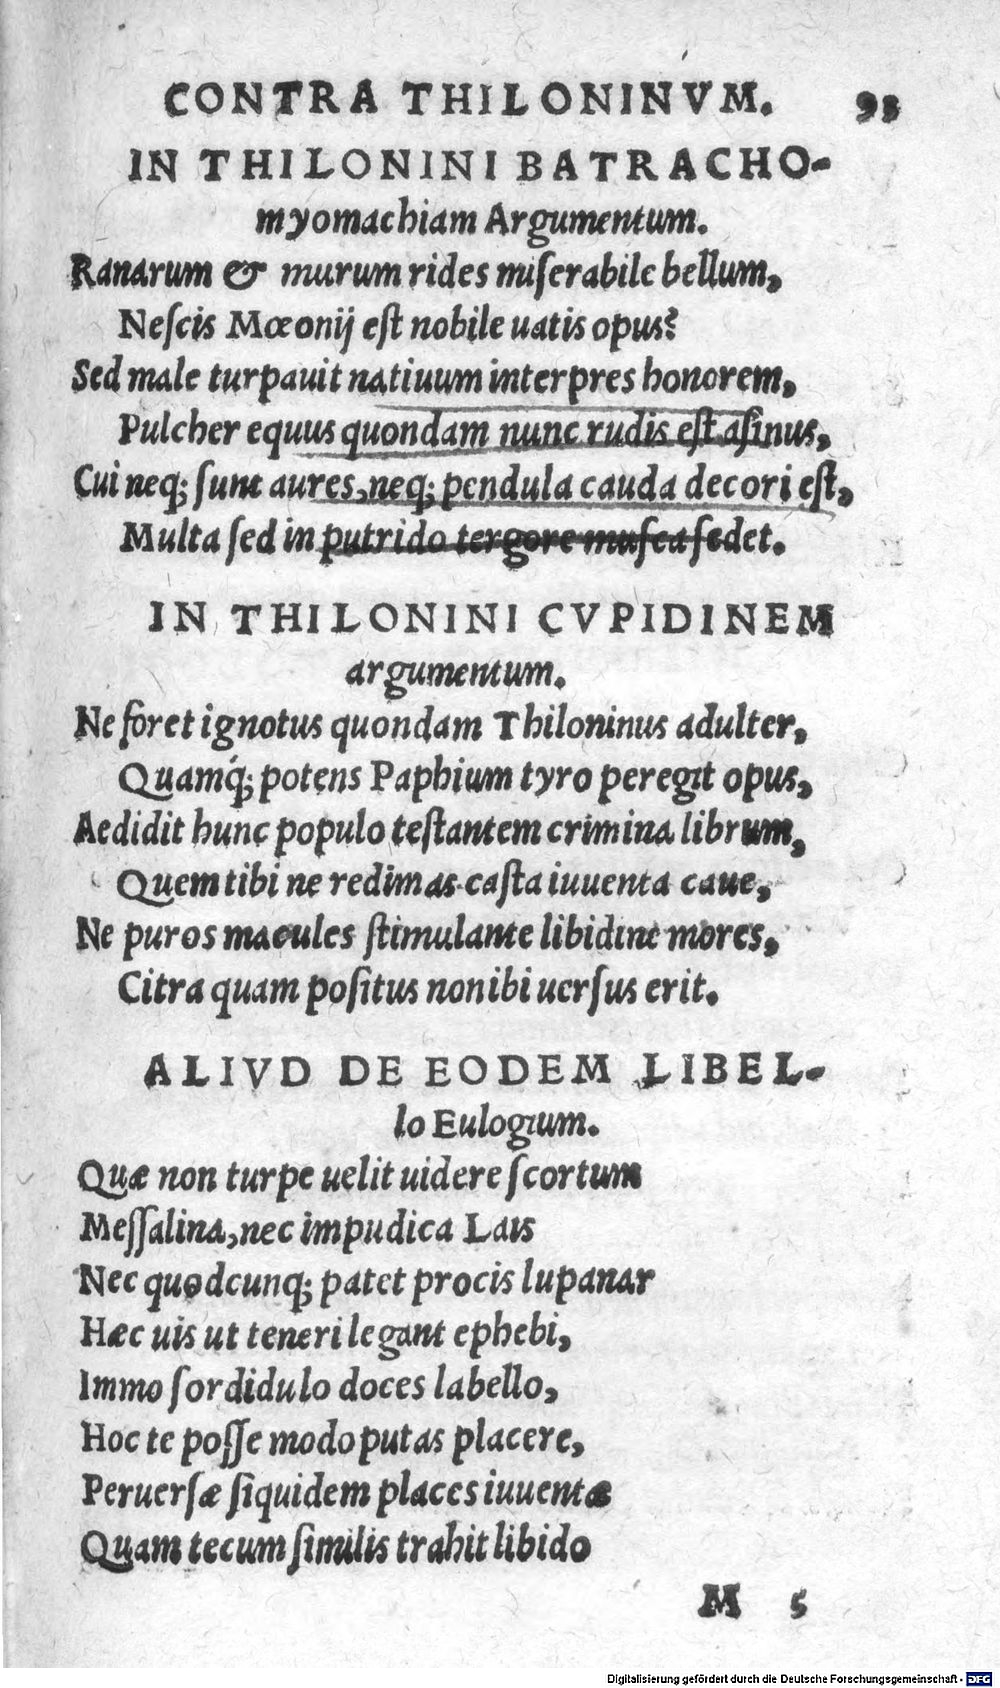 CONTRA THILONINVM. 93
IN THILONINI BATRACHO-
myomachiam Argumentum.
Ranarum & murum rides miſerabile bellum,
Neſcis Mœonij eſt nobile uatis opus?
Sed male turpauit natiuum interpres honorem,
Pulcher equus quondam nunc rudis eſt aſinus,
Cui neq; ſunt aures, neq; pendula cauda decori eſt,
Multa ſed in putrido tergore muſca ſedet.
IN THILONINI CVPIDINEM
argumentum.
Ne foret ignotus quondam Thiloninus adulter,
Quamq́; potens Paphium tyro peregit opus,
Aedidit hunc populo teſtantem crimina librum,
Quem tibi ne redimas caſta iuuenta caue,
Ne puros macules ſtimulante libidine mores,
Citra quam poſitus non ibi uerſus erit.
ALIVD DE EODEM LIBEL-
lo Eulogium.
Quæ non turpe uelit uidere ſcortum
Meſſalina, nec impudica Lais
Nec quodcunq; patet procis lupanar
Hæc uis ut teneri legant ephebi,
Immo ſordidulo doces labello,
Hoc te poſſe modo putas placere,
Peruerſæ ſiquidem places iuuentæ
Quam tecum ſimilis trahit libido
M 5
Digitalisierung gefördert durch die Deutsche Forschungsgemeinschaft - DFG